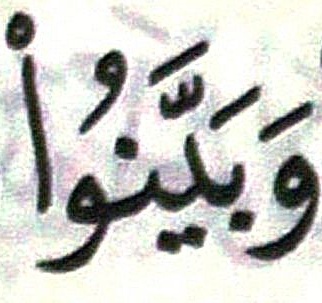 وَبَيَّنُوا۟